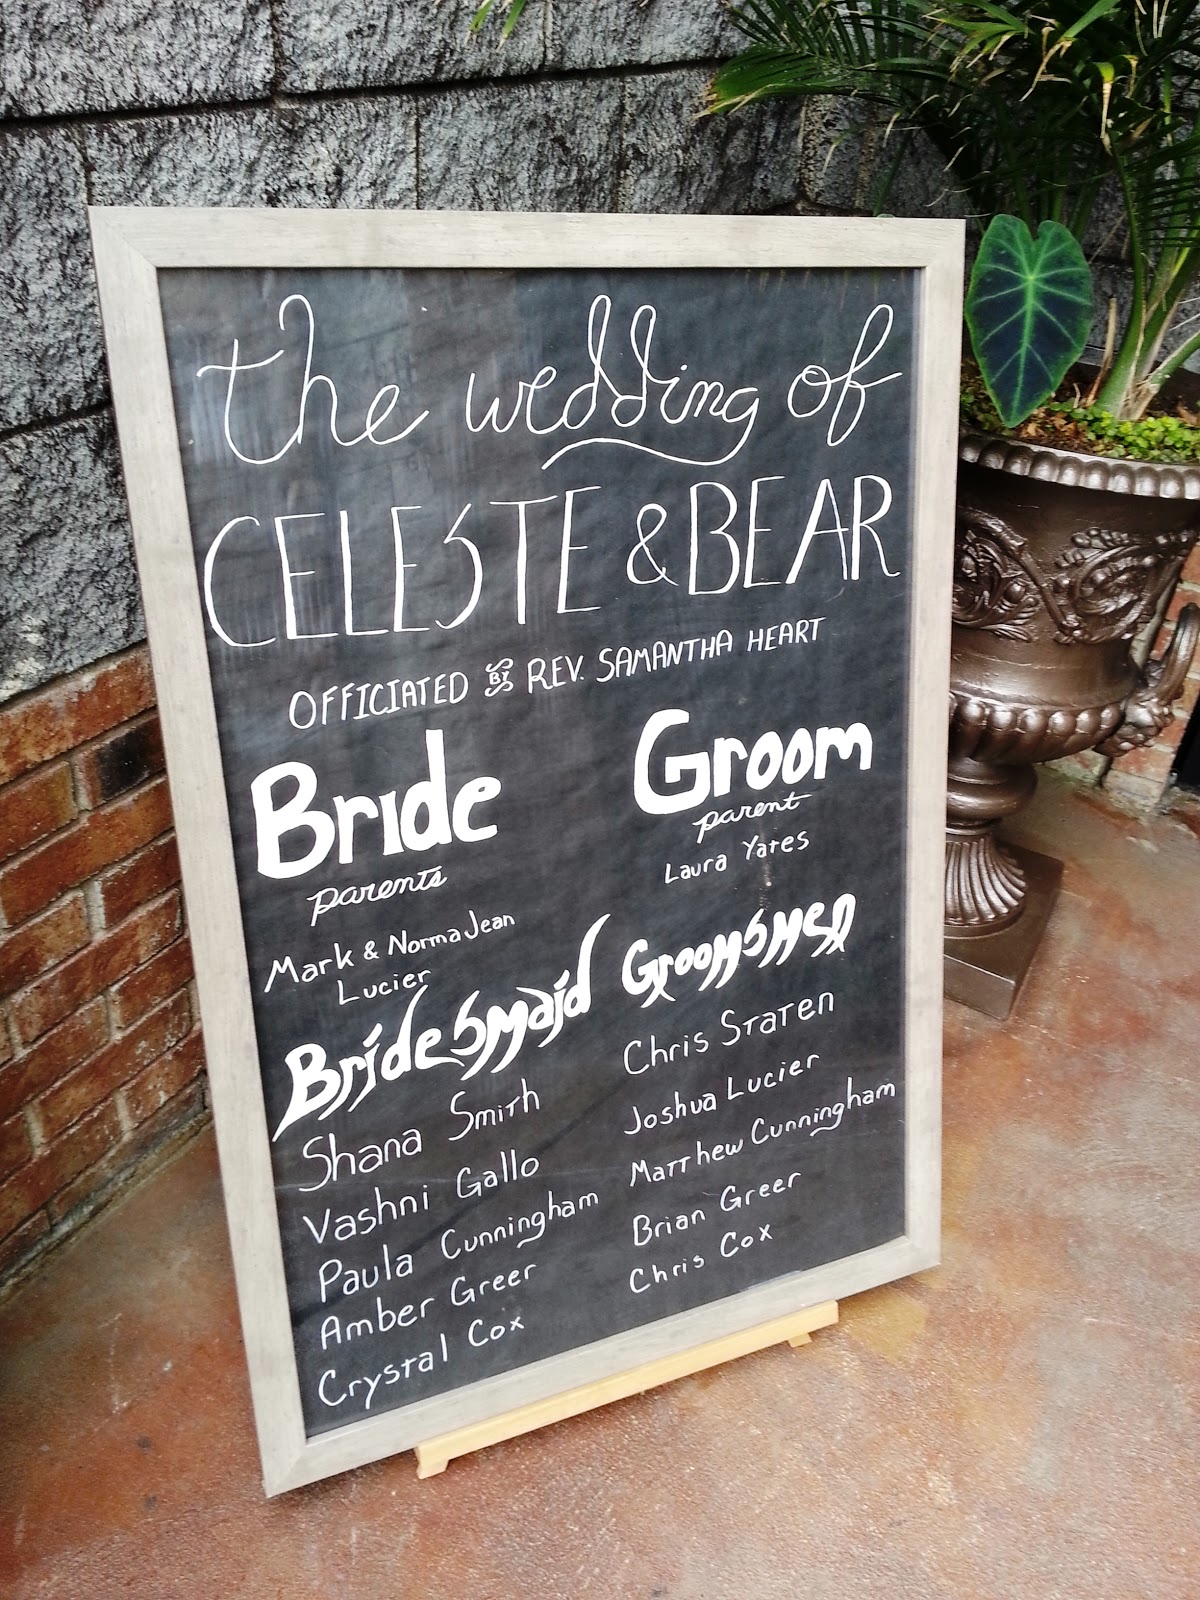 the wedding of
CELESTE & BEAR
OFFICIATED BY REV. SAMANTHA HEART
Bride
parents
Mark & Norma Jean
Lucier
Bridesmaid
Shana Smith
Vashni Gallo
Paula Cunningham
Amber Greer
Crystal Cox
Groom
parent
Laura Yates
Groomsmen
Chris Staten
Joshua Lucier
Matthew Cunningham
Brian Greer
Chris Cox